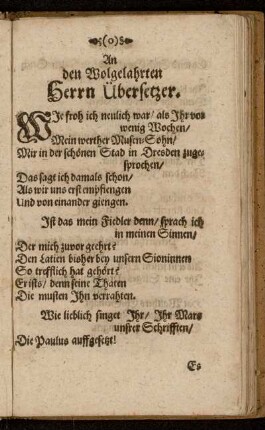 (o)
An
den Wolgelahrten
Herrn Übersetzer.
WJe froh ich neulich war/ als Jhr vor
wenig Wochen/
Mein werther Musen-Sohn/
Mir in der schönen Stad in Dresden zuge-
sprochen/
Das sagt ich damals schon/
Als wir uns erst empfiengen
Und von einander giengen.
Jst das mein Fiedler denn/ sprach ich
in meinen Sinnen/
Der mich zuvor geehrt?
Den Latien bisher bey unsern Sioninnen
So trefflich hat gehört?
Er ists/ denn seine Thaten
Die musten Jhn verrahten.
Wie lieblich singet Jhr/ Jhr Mars
unsrer Schrifften/
Die Paulus auffgesetzt!
Es